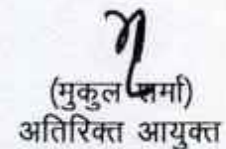 (मुकुल शर्मा)
अतिरिक्त आयुक्त